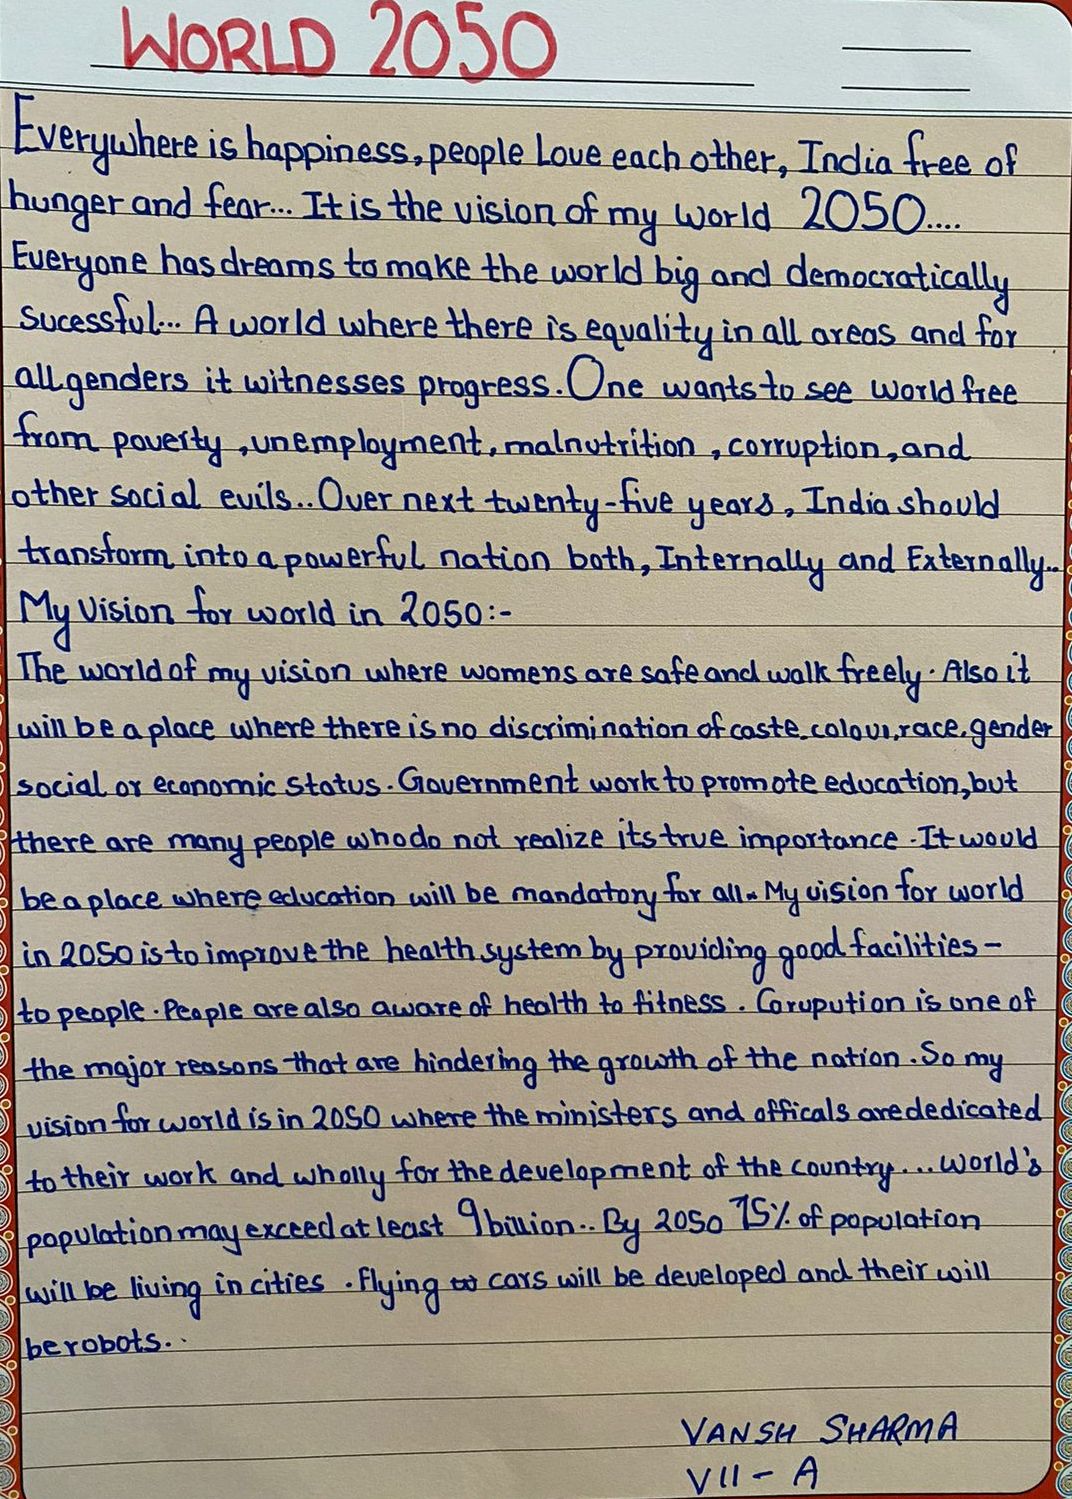 WORLD 2050
Everywhere is happiness, people Love each other, India free of
hunger and fear... It is the vision of my world 2050....
Everyone has dreams to make the world big and democratically
sucessful... A world where there is equality in all areas and for
all genders it witnesses progress. One wants to see world free
from poverty, unemployment, malnutrition, corruption, and
other social evils.. Over next twenty-five years, India should
transform into a powerful nation both, Internally and Externally..
My Vision for world in 2050:-
The world of my vision where womens are safe and walk freely. Also it
will be a place where there is no discrimination of caste, colour, race, gender
social or economic status. Government work to promote education, but
there are many people who do not realize its true importance. It would
be a place where education will be mandatory for all. My vision for world
in 2050 is to improve the health system by providing good facilities -
to people. People are also aware of health to fitness. Corupution is one of
the major reasons that are hindering the growth of the nation. So my
vision for world is in 2050 where the ministers and officals are dedicated
to their work and wholly for the development of the country.... World's
population may exceed at least 9 billion.. By 2050 75% of population
will be living in cities. Flying cars will be developed and their will
be robots..
VANSH SHARMA
VII - A